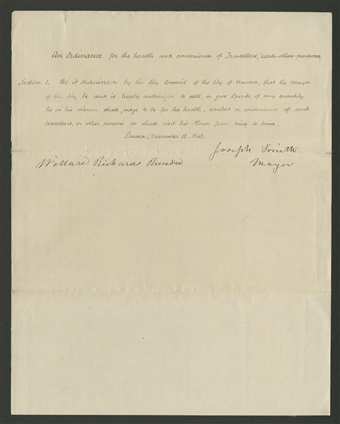 An Ordinance for the health and convenience of Travellers, and other purposes.
Section 1. Be it ordained by the City Council of the City of Nauvoo, that the Mayor
of the City be and is hereby authorized to sell or give Spirits of any quantity
he in his wisdom shall judge to be for the health, comfort or convenience of such
travellers, or other persons as shall visit his House from time to time.
Passed, December 12, 1843.
Joseph Smith
Willard Richards Recorder
Mayor